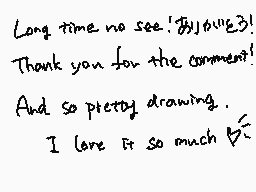 Long time no see! ありがとう!
Thank you for the comment!
And so pretty drawing.
I love it so much